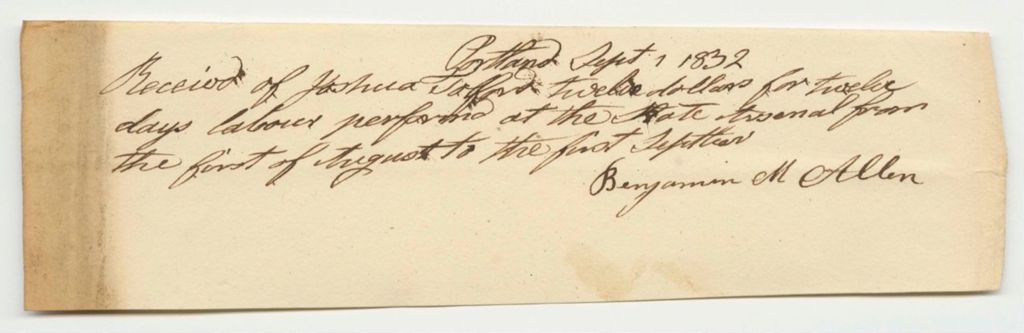 Portland Sept 1 1832
Received of Joshua Tofford twelve dollars for twelve
days labour performd at the State Arsenal from
the first of August to the first Septber
Benjamin M Allen